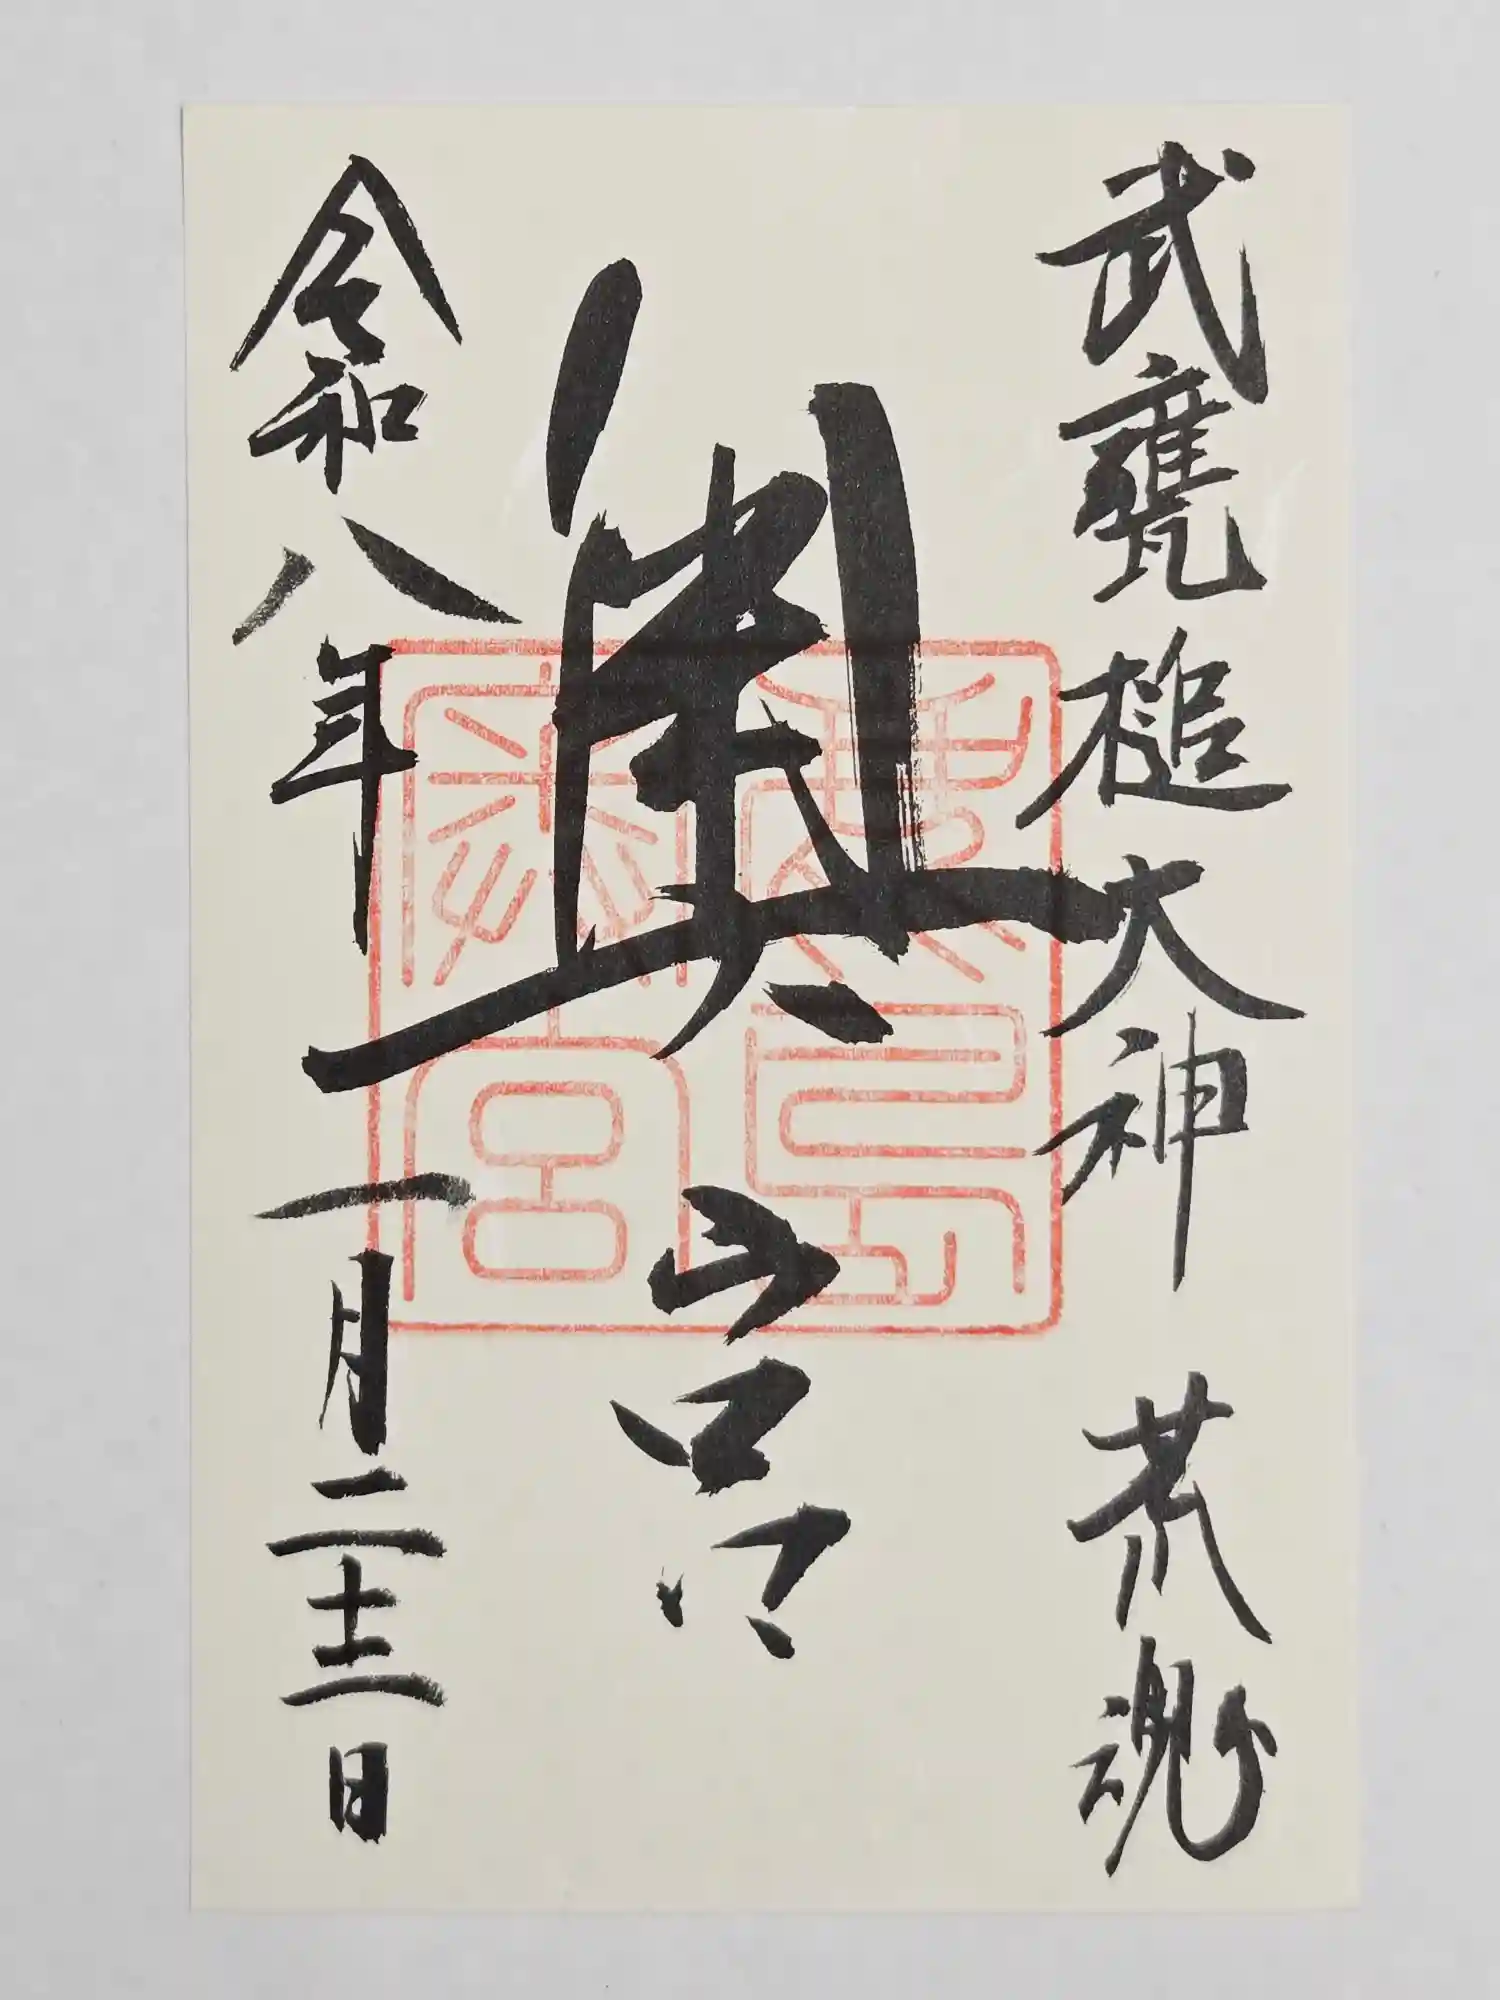 武甕槌大神 荒魂
奥宮
鹿島神宮
令和八年一月二十二日